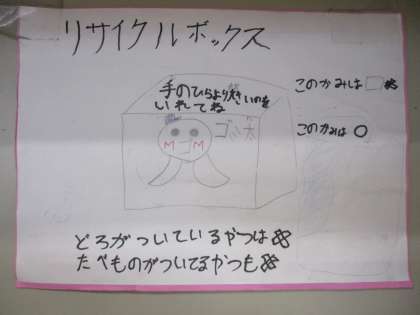 リサイクルボックス
手のひらより大きいのを
いれてね
このかみは
このかみは○
どろがついているやつは✕
たべものがついてるやつも✕